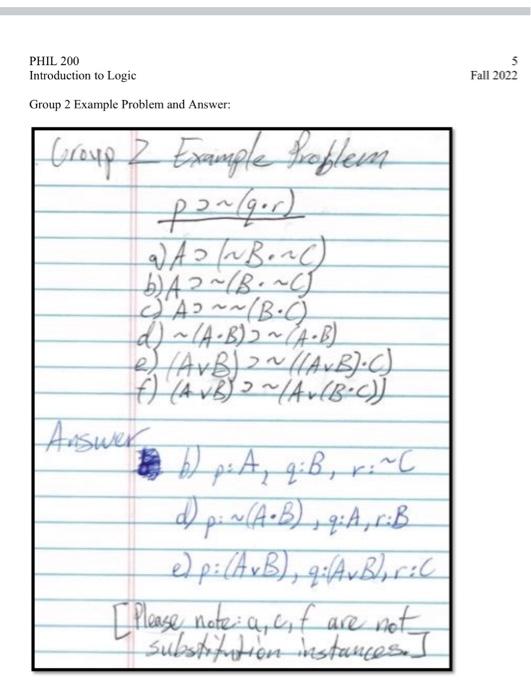 PHIL 200
5
Introduction to Logic
Fall 2022
Group 2 Example Problem and Answer:
Group 2 Example Problem
p⊃~(q•r)
a) A⊃(~B•~C)
b) A⊃~(B•~C)
c) A⊃~~(B•C)
d) ~(A•B)⊃~(A•B)
e) (A∨B)⊃~((A∨B)•C)
f) (A∨B)⊃~(A∨(B•C))
Answer
b) p:A, q:B, r:~C
d) p:~(A•B), q:A, r:B
e) p:(A∨B), q:(A∨B), r:C
[Please note: a, c, f are not
substitution instances.]